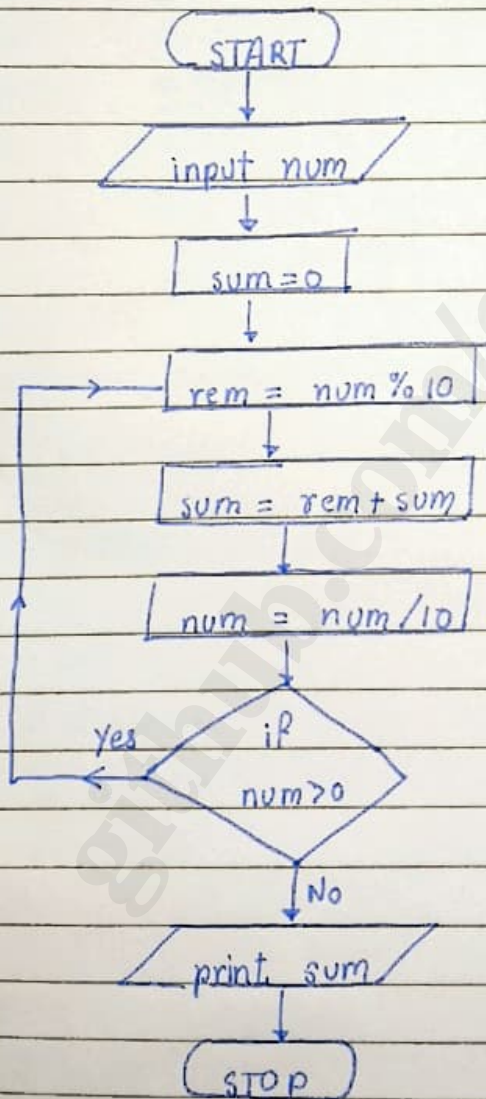 START
input num
sum=0
rem = num % 10
sum = rem + sum
num = num /10
Yes
if
num>0
No
print sum
STOP
github.com/